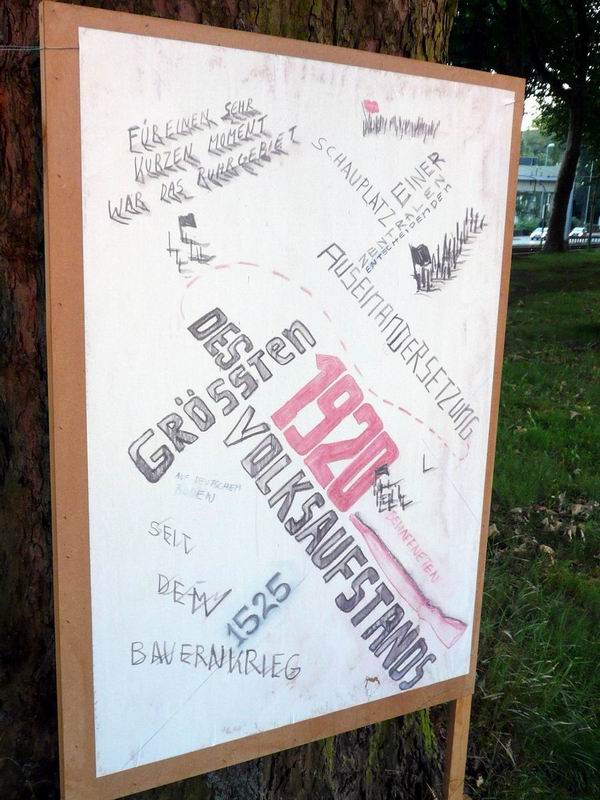 FÜR EINEN SEHR
KURZEN MOMENT
WAR DAS RUHRGEBIET
SCHAUPLATZ
EINER
ZENTRALEN
ENTSCHEIDENDEN
AUSEINANDERSETZUNG
1920
DES
GRÖSSTEN
VOLKSAUFSTANDS
AUF DEUTSCHEM
BODEN
SEIT
DEM
1525
BAUERNKRIEG